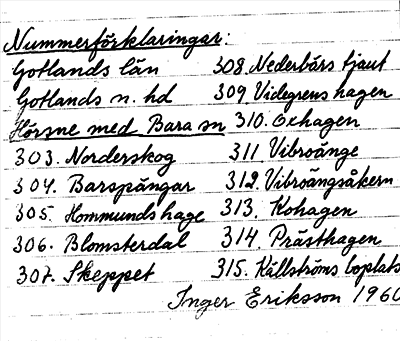 Nummerförklaringar:
Gotlands län
Gotlands n. hd
Hörsne med Bara sn
303. Norderskog
304. Barspängar
305. Hommunds hage
306. Blomsterdal
307. Skeppet
308. Nederbärs tjaut
309. Videgrens hagen
310. Oxhagen
311. Vibroänge
312. Vibroängsåkern
313. Kohagen
314. Prästhagen
315. Källströms boplats
Inger Eriksson 1960